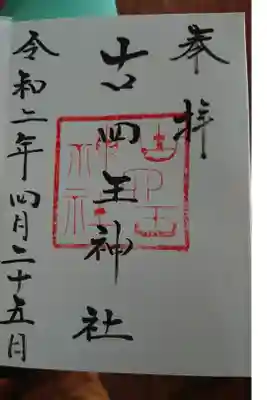 奉拝
古四王神社
令和二年四月二十五日
古四王
神社